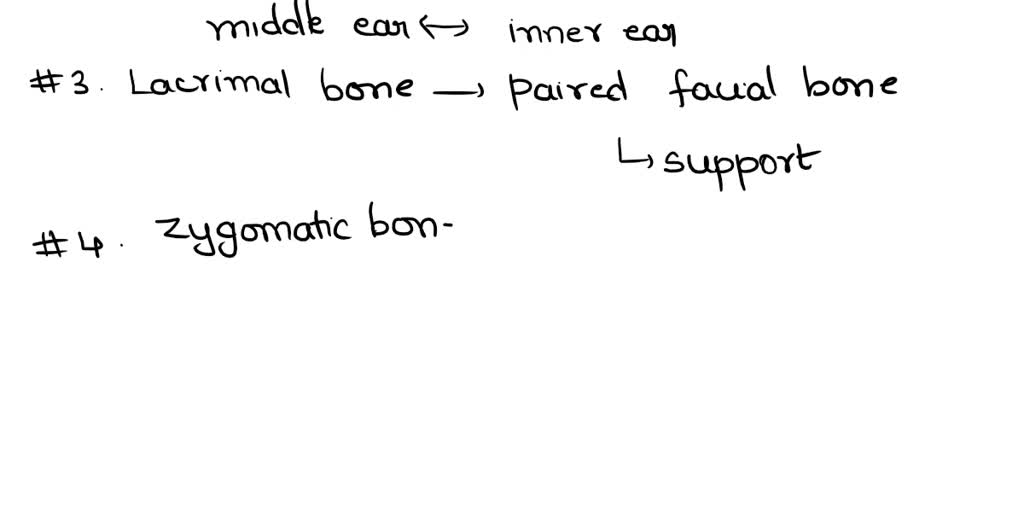 middle ear ↔ inner ear
#3. Lacrimal bone → paired facial bone
↳ support
#4. zygomatic bon-